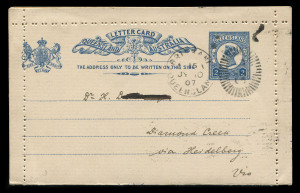 LETTER CARD
QUEENSLAND AUSTRALIA
THE ADDRESS ONLY TO BE WRITTEN ON THIS SIDE
07
QUEENSLAND
Dr H.
Diamond Creek
via Heidelberg
Vic